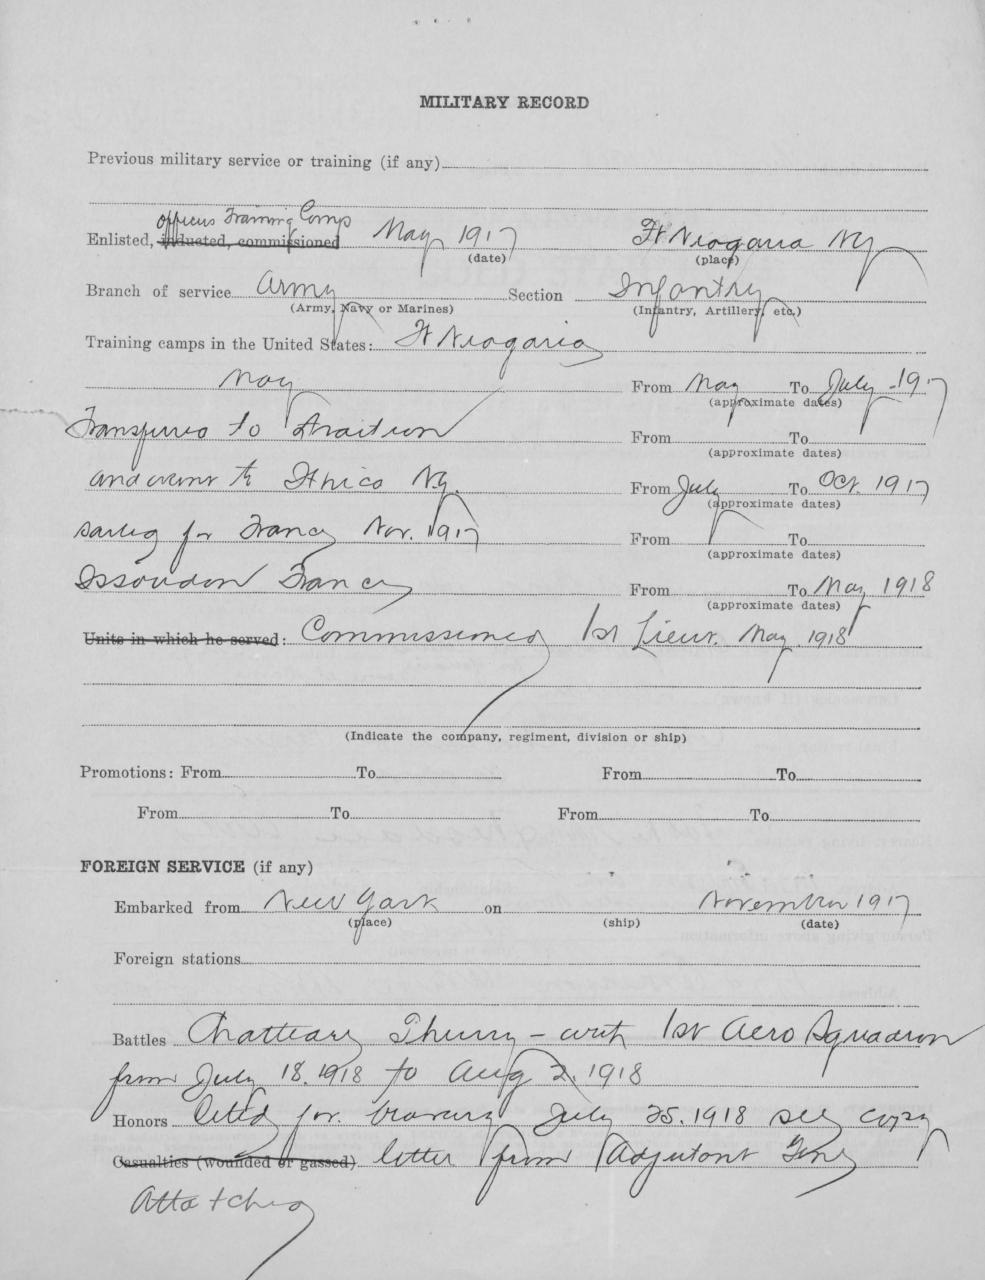 MILITARY RECORD
Previous military service or training (if any)
Officers Training Camp
Enlisted, inducted, commissioned May 1917 Ft Niagaria NY
(date) (place)
Branch of service Army Section Infantry
(Army, Navy or Marines) (Infantry, Artillery, etc.)
Training camps in the United States: Ft Niagaria
May From May To July 1917
(approximate dates)
Transferred to Aviation From To
(approximate dates)
and went to Ithica N.Y. From July To Oct. 1917
(approximate dates)
sailed for France Nov. 1917 From To
(approximate dates)
Issoudon France From To May 1918
(approximate dates)
Units in which he served: Commissioned 1st Lieut. May 1918
(Indicate the company, regiment, division or ship)
Promotions: From To From To
From To From To
FOREIGN SERVICE (if any)
Embarked from New York on November 1917
(place) (ship) (date)
Foreign stations
Battles Chatteau Thierry - with 1st Aero Squadron
from July 18. 1918 to Aug 2. 1918
Honors Cited for bravery July 25. 1918 see copy
Casualties (wounded or gassed) letter from Adjutant Genl
Attatched